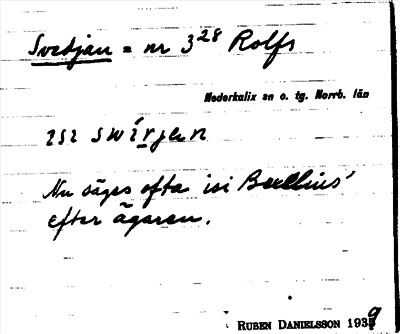 Svedjan = nr 3²⁸ Rolfs
Nederkalix sn o. tg. Norrb. län
Nu säges ofta isi Bællius'
efter ägaren.
RUBEN DANIELSSON 1939